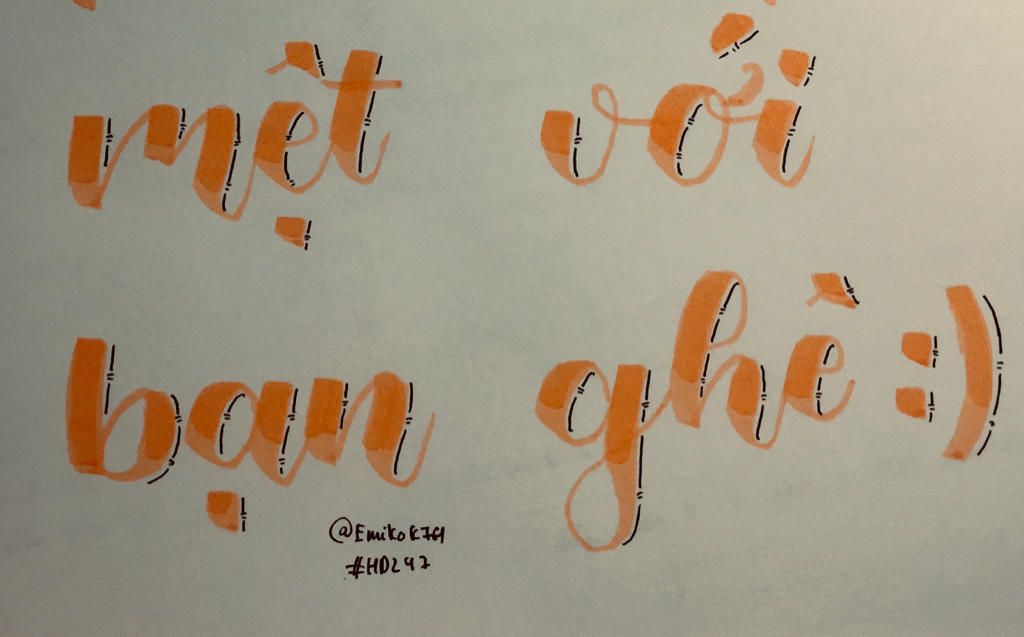 mệt với
bạn ghê :)
#HD247